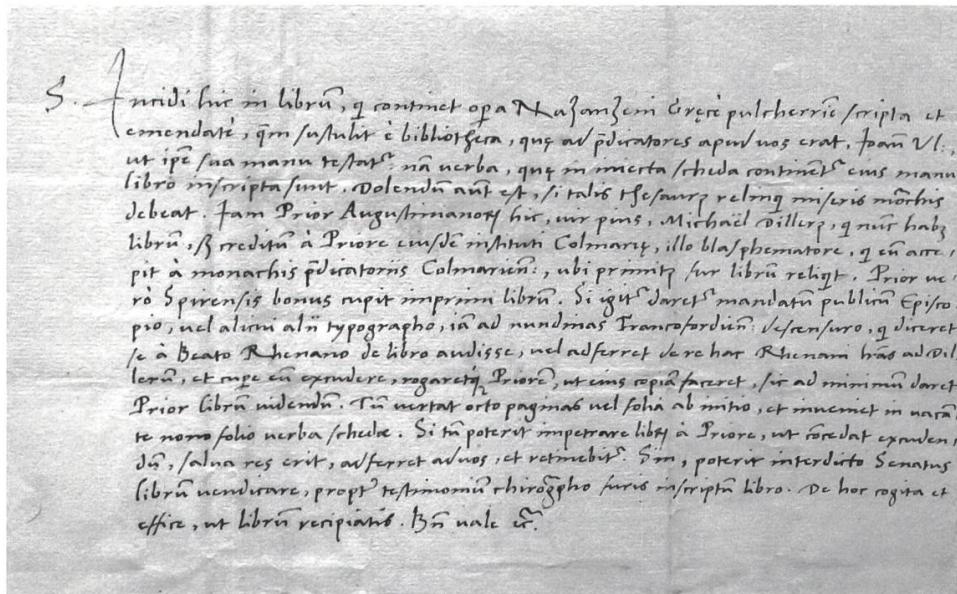 S. Incidi hic in librũ, qi continet opa Naʒanʒeni Gręcè pulcherrĩe scripta et
emendatè, qẽm sustulit è bibliotheca, quę ad p̃dicatores apud vos erat, Joañ Vl:,
ut ip̃e sua manu testatr nã verba, quę in iniecta scheda continẽtr eius manu
libro inscripta sunt. Dolendũ aũt est, si talis thesaurꝫ relinqi miseris mõchis
debeat. Jam Prior Augustinianoꝝ hic, vir pius, Michaël Dillerꝫ, qi nunc habꝫ
librũ, sꝫ creditũ à Priore eiusdẽ instituti Colmarię, illo blasphematore, qi eũ acce,
pit à monachis p̃dicatoriis Colmarieñ:, ubi primitꝫ fur librũ reliqit. Prior ve,
rò Spirensis bonus cupit imprimi librũ. Si igitr daretr mandatũ publicũ Episco,
pio, vel alicui alii typographo, iã ad nundinas Francofordieñ: descensuro, qi diceret
se à Beato Rhenano de libro audisse, vel adferret de re hac Rhenani lr̃as ad Dil,
lerũ, et cupe eũ excudere, rogaretqꝫ Priorẽ, ut eius copiã faceret, sic ad minimũ daret
Prior librũ videndũ. Tũ vertat octo paginas vel folia ab initio, et inveniet in vacañ,
te nono folio verba schedæ. Si tũ poterit impetrare libꝝ à Priore, ut cõcedat excuden,
dũ, salva res erit, adferret ad vos, et retinebitr. Sin, poterit interdicto Senatus
librũ vendicare, proptr testimoniũ chirogr̃pho furis inscriptũ libro. De hoc cogita et
effice, ut librũ recipiatis. Bñ vale ec̃.